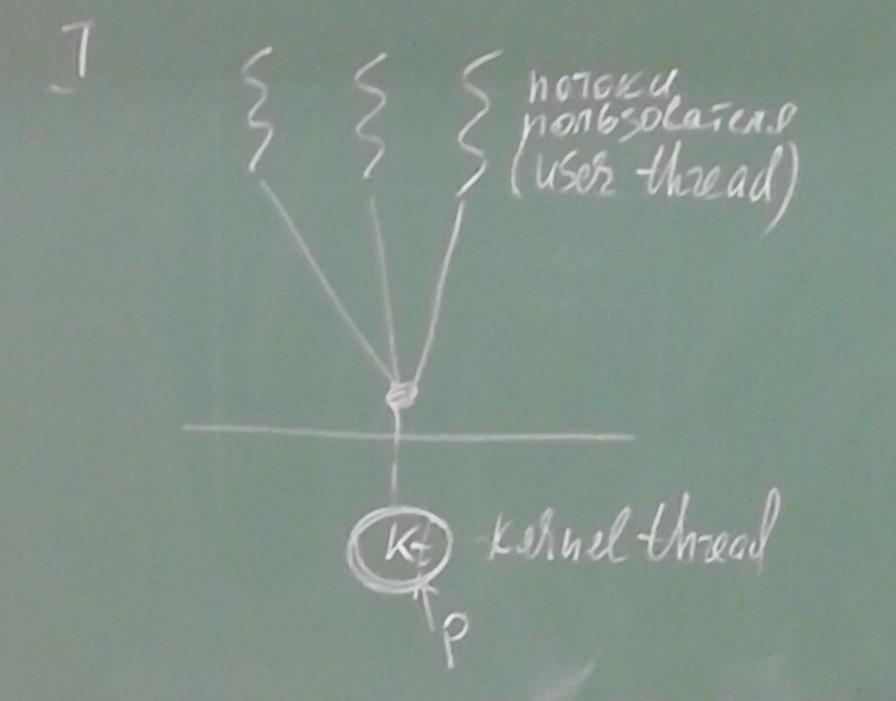 I
потоки
пользователя
(user thread)
Kt
kernel thread
P